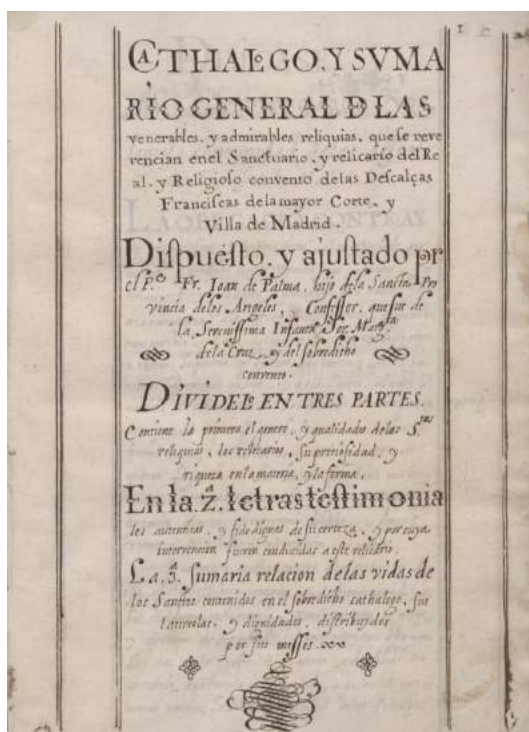 CATHALgO. Y SVMA
RIO GENERAL D LAS
venerables. y admirables reliquias. que se reve
rencian en el Sanctuario. y relicario del Re
al. y Religioso convento de las Descalças
Franciscas de la mayor Corte. y
Villa de Madrid.
Dispuesto. y ajustado pr
el P.e Fr. Ioan de Palma. hijo de la Sancta Pro
vincia de los Angeles. Confessor. que fue de
la Serenissima Infanta Sor. Marg.ta
de la Cruz. y del sobredicho
convento.
DIVIDELE EN TRES PARTES.
Contiene la primera el genero. y qualidades de las S.tas
reliquias. los relicarios. su preciosidad. y
riqueza en la materia. y la forma.
En la 2.ª letras testimonia
les autenticas. y fidedignas de su certeza. y por cuya
intervencion fueron conducidas a este relicario.
La 3.ª sumaria relacion de las vidas de
los Sanctos contenidos en el sobredicho cathalogo. sus
laureolas. y dignidades. distribuydos
por sus messes.